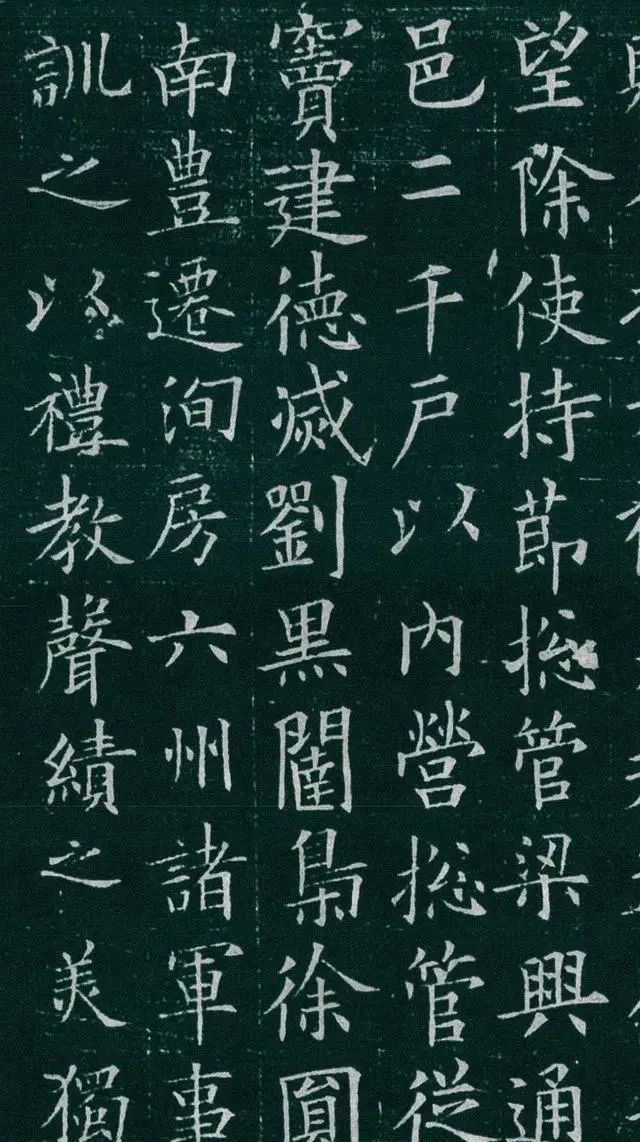 望除使持節揔管梁興通
邑二千戶以内營揔管從
竇建德滅劉黑闥梟徐圓
南豊遷洵房六州諸軍事
訓之以禮教聲績之美獨